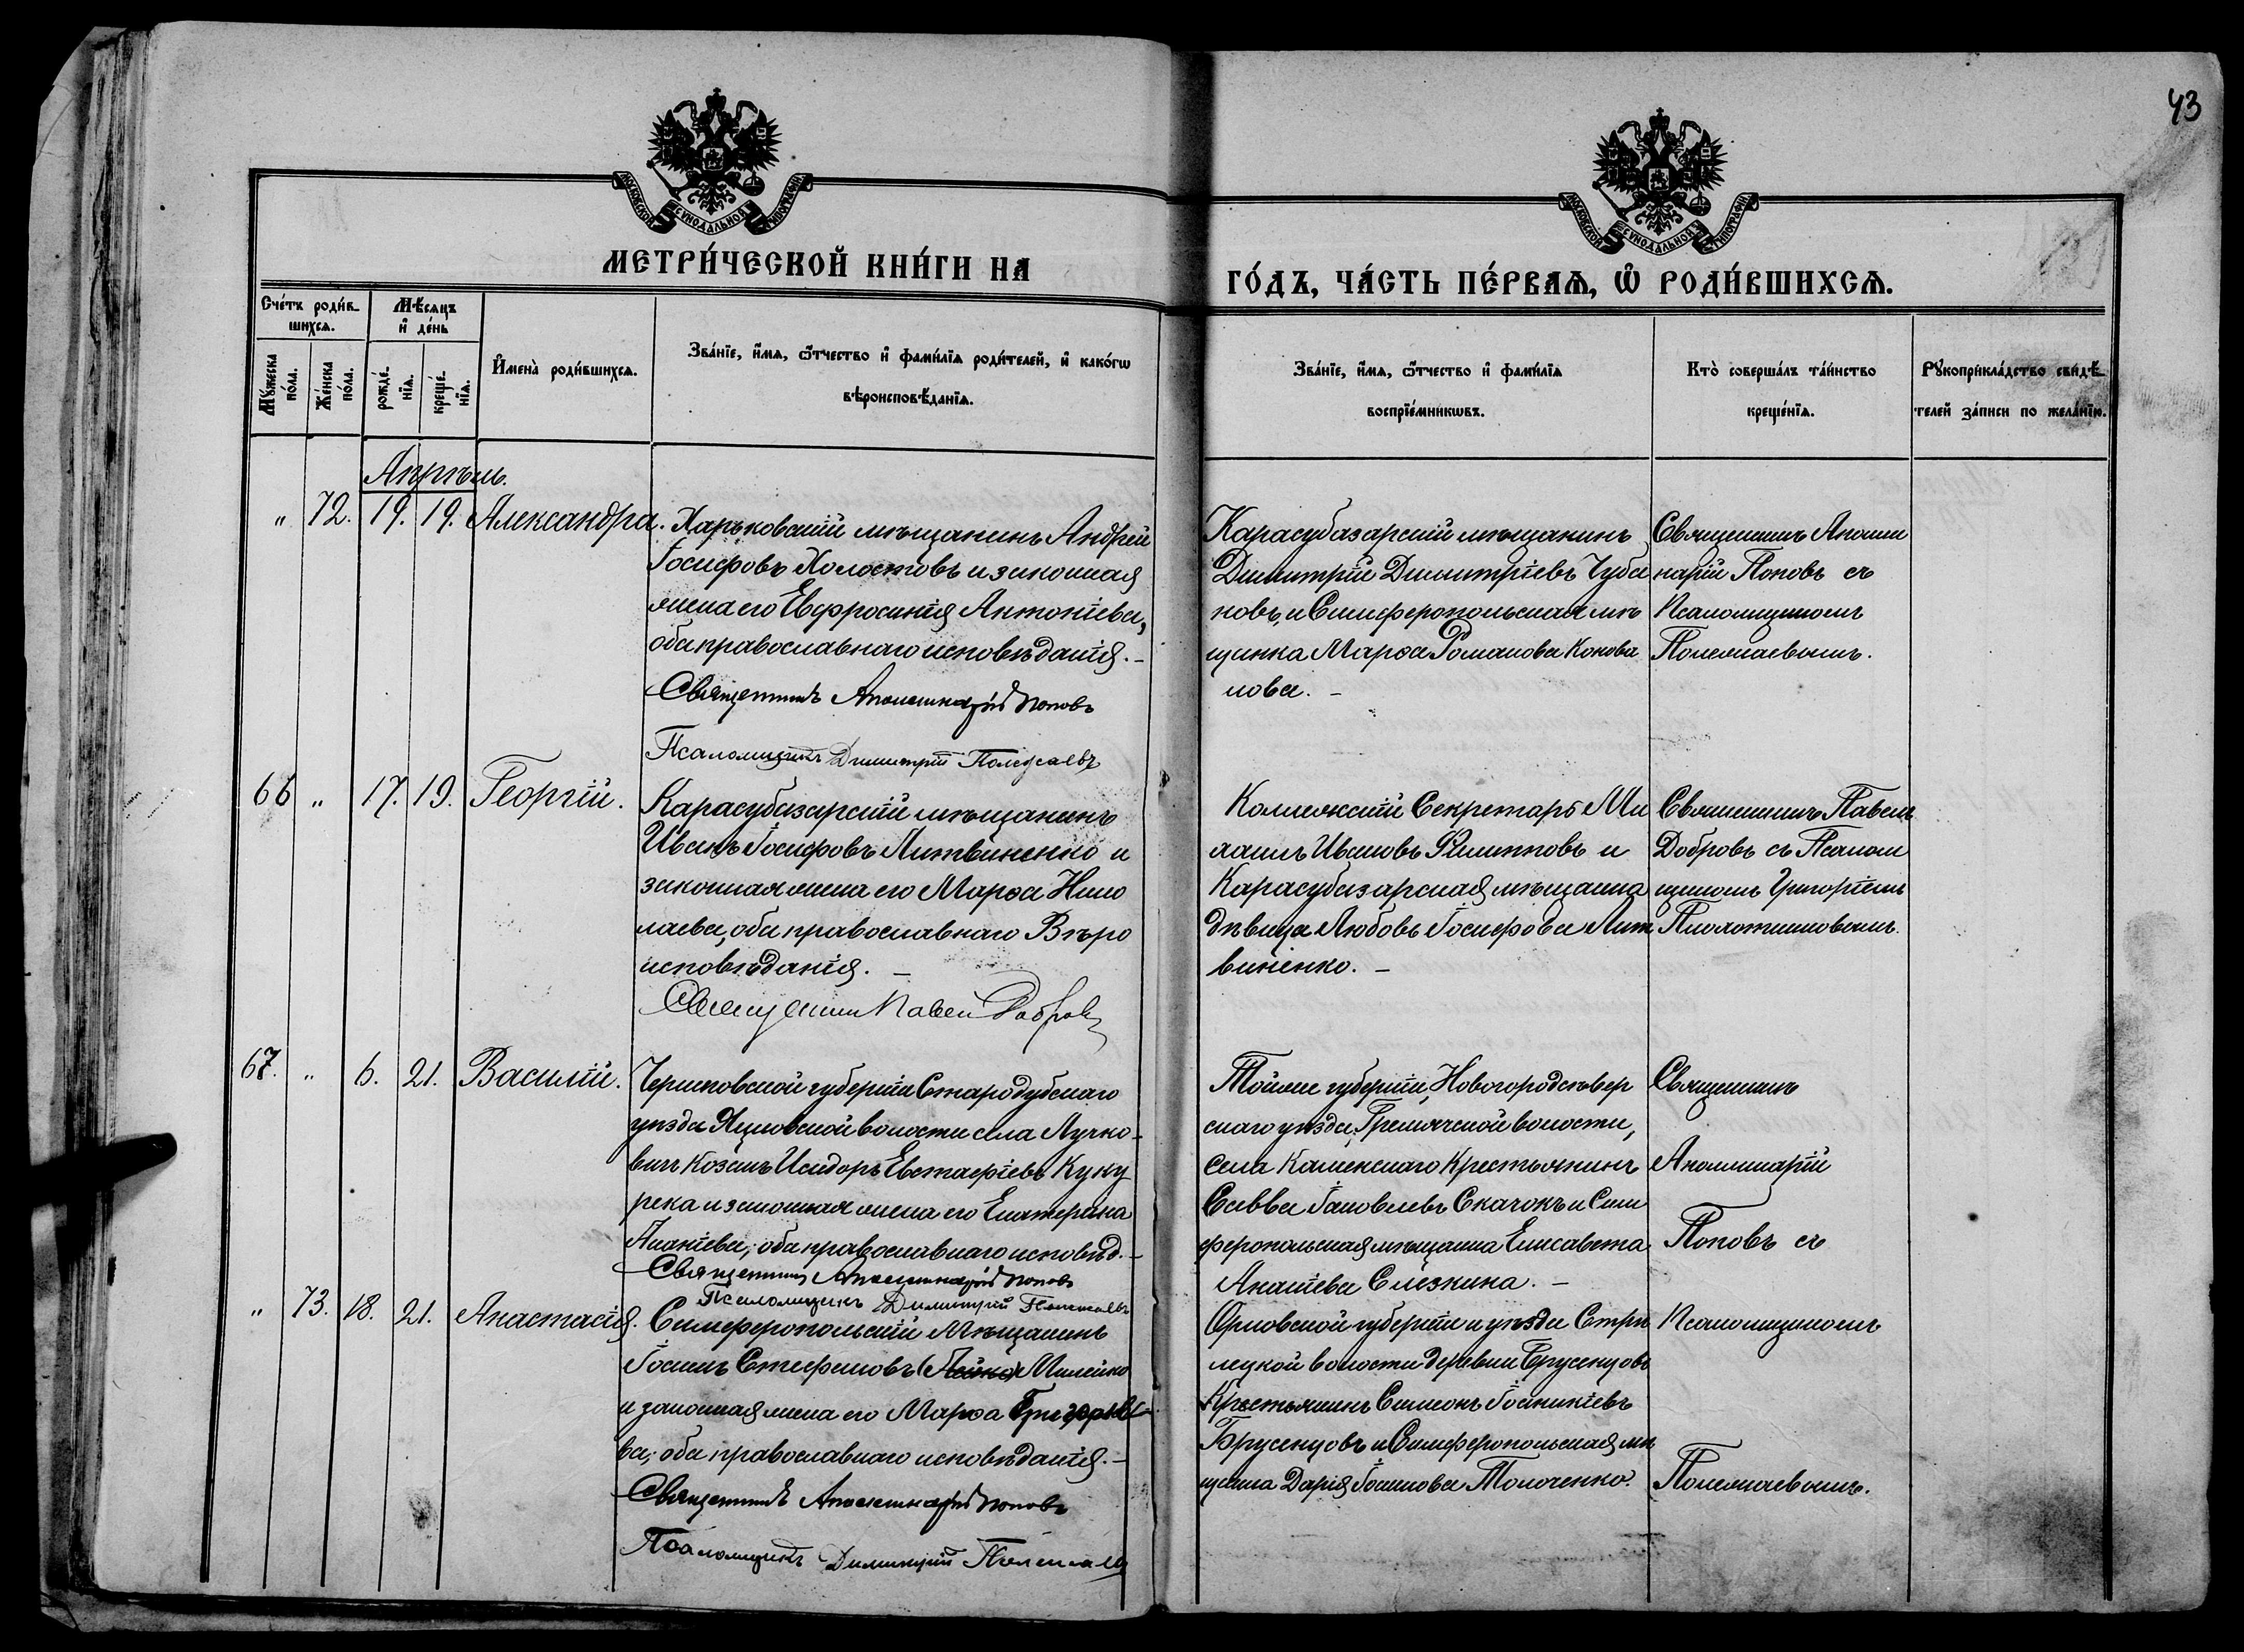 43
МОСКОВСКОЙ СѴНОДАЛЬНОЙ ТИПОГРАФІИ
МОСКОВСКОЙ СѴНОДАЛЬНОЙ ТИПОГРАФІИ
МЕТРИ́ЧЕСКОЙ КНИ́ГИ НА
ГО́ДЪ, ЧА́СТЬ ПЕ́РВАѦ, Ѡ҆ РОДИ́ВШИХСѦ.
Сче́тъ роди́в-
шихсѧ.
Мꙋ́жеска
по́ла.
Же́нска
по́ла.
Мѣ́сѧцъ
и҆ де́нь
рожде́-
нїѧ.
креще́-
нїѧ.
И҆мена̀ роди́вшихсѧ.
Зва́нїе, и҆́мѧ, ѻ҆́тчество и҆ фами́лїѧ роди́телей, и҆ како́гѡ
вѣроисповѣ́данїѧ.
Зва́нїе, и҆́мѧ, ѻ҆́тчество и҆ фами́лїѧ
воспрїе́мникѡвъ.
Кто̀ соверша́лъ та́инство
креще́нїѧ.
Рꙋкоприкла́дство свидѣ́-
телей за́писи по жела́нїю.
Апрѣль.
" 72. 19. 19. Александра.
Харьковскій мѣщанинъ Андрей
Іосифовъ Холостовъ и законная
жена его Евфросинія Антоніева,
оба православнаго исповѣданія. –
Священникъ Аполлинарій Поповъ
Псаломщикъ Димитрій Полежаевъ
Карасубазарскій мѣщанинъ
Димитрій Димитріевъ Чуба
новъ, и Симферопольская мѣ
щанка Марѳа Романова Конова
лова. –
Священникъ Аполли
нарій Поповъ съ
Псаломщикомъ
Полежаевымъ.
66 " 17. 19. Георгій.
Карасубазарскій мѣщанинъ
Иванъ Іосифовъ Литвиненко и
законная жена его Марѳа Нико
лаева, оба православнаго Вѣро
исповѣданія. –
Священникъ Павелъ Добровъ
Коллежскій Секретарь Ми
хаилъ Ивановъ Филипповъ и
Карасубазарская мѣщанка
дѣвица Любовь Іосифова Лит
виненко. –
Священникъ Павелъ
Добровъ съ Псалом
щикомъ Григоріемъ
Плохотниковымъ.
67. " 6. 21. Василій.
Черниговской губерніи Стародубскаго
уѣзда Яцковской волости села Лучко-
вичъ Козакъ Исидоръ Евстафіевъ Куку
река и законная жена его Екатерина
Ананіева, оба православнаго исповѣд. –
Священникъ Аполлинарій Поповъ
Псаломщикъ Димитрій Полежаевъ
Тойже губерніи, Новогородсѣвер
скаго уѣзда, Гремячской волости,
села Каменскаго Крестьянинъ
Савва Іаковлевъ Скачокъ и Сим
феропольская мѣщанка Елисавета
Ананіева Слезкина. –
Священникъ
Аполлинарій
Поповъ съ
" 73. 18. 21. Анастасія.
Симферопольскій Мѣщанинъ
Іоаннъ Стефановъ (Лейко) Милейко
и законная жена его Марѳа Григорье
ва, оба православнаго исповѣданія. –
Священникъ Аполлинарій Поповъ
Псаломщикъ Димитрій Полежаевъ
Орловской губерніи и уѣзда Стрѣ
лецкой волости деревни Брусенцовъ
Крестьянинъ Симеонъ Іоанникіевъ
Брусенцовъ и Симферопольская мѣ
щанка Дарія Іоаннова Толоченко.
Псаломщикомъ
Полежаевымъ.